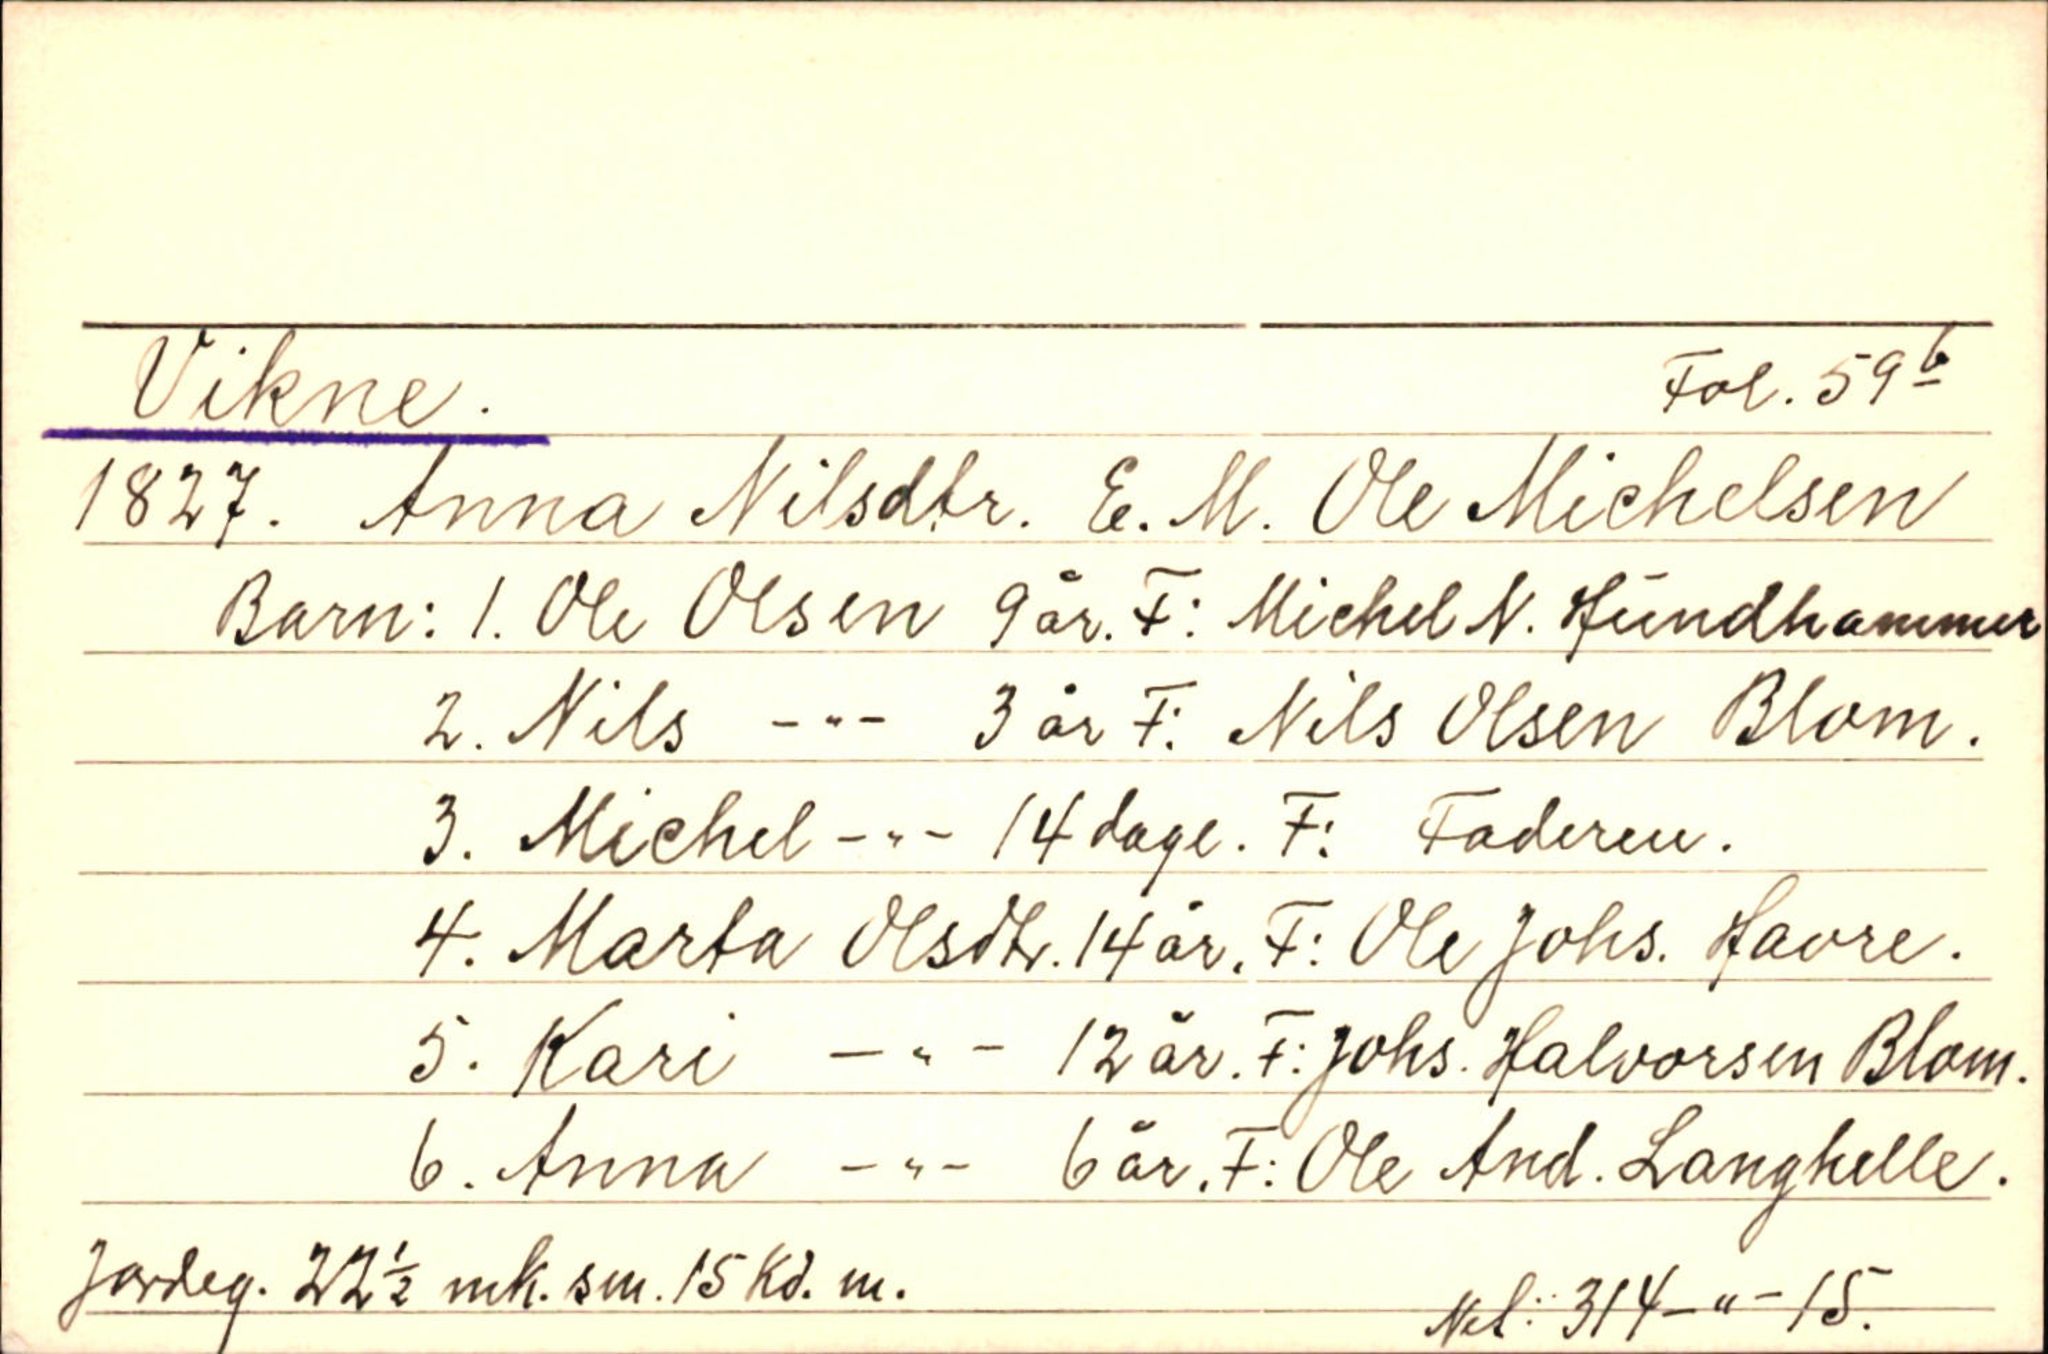 Vikne. Fol. 59b
1827. Anna Nilsdtr. E. M. Ole Michelsen
Barn: 1. Ole Olsen 9 år. F: Michel N. Hundhammer
2. Nils -"- 3 år F: Nils Olsen Blom.
3. Michel -"- 14 dage. F: Faderen.
4. Marta Olsdtr. 14 år. F: Ole Johs. Havre.
5. Kari -"- 12 år. F: Johs. Halvorsen Blom.
6. Anna -"- 6 år. F: Ole And. Langhelle.
Jordeg. 22½ mk. sm. 15 Kd. m.
Net: 314-"-15.